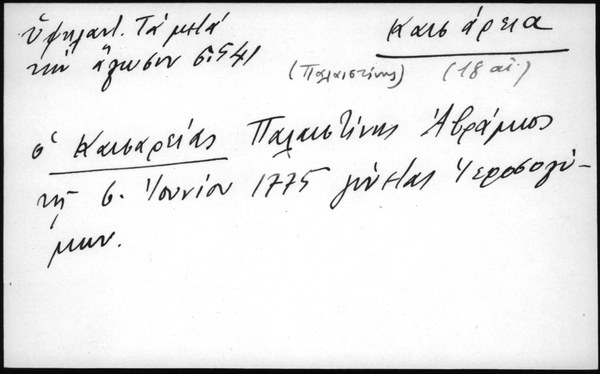 Ὑψηλάντ. Τά μετά
τήν ἅλωσιν σ. 541
Καισάρεια
(Παλαιστίνης) (18 αἰ.)
ὁ Καισαρείας Παλαιστίνης Ἀβράμιος
τῇ 6 Ἰουνίου 1775 γίνεται Ἱεροσολύ-
μων.